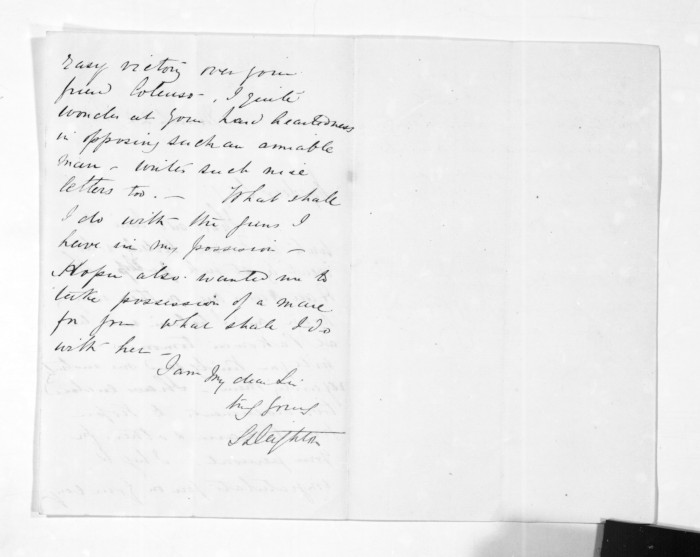 easy victory over your
friend Colenso -, I quite
wonder at your hard heartedness
in opposing such an amiable
man - writes such nice
letters too. - What shall
I do with the guns I
have in my possession -
Hope also wanted me to
take possession of a mare
for you what shall I do
with her -
I am My dear Sir
truly yours